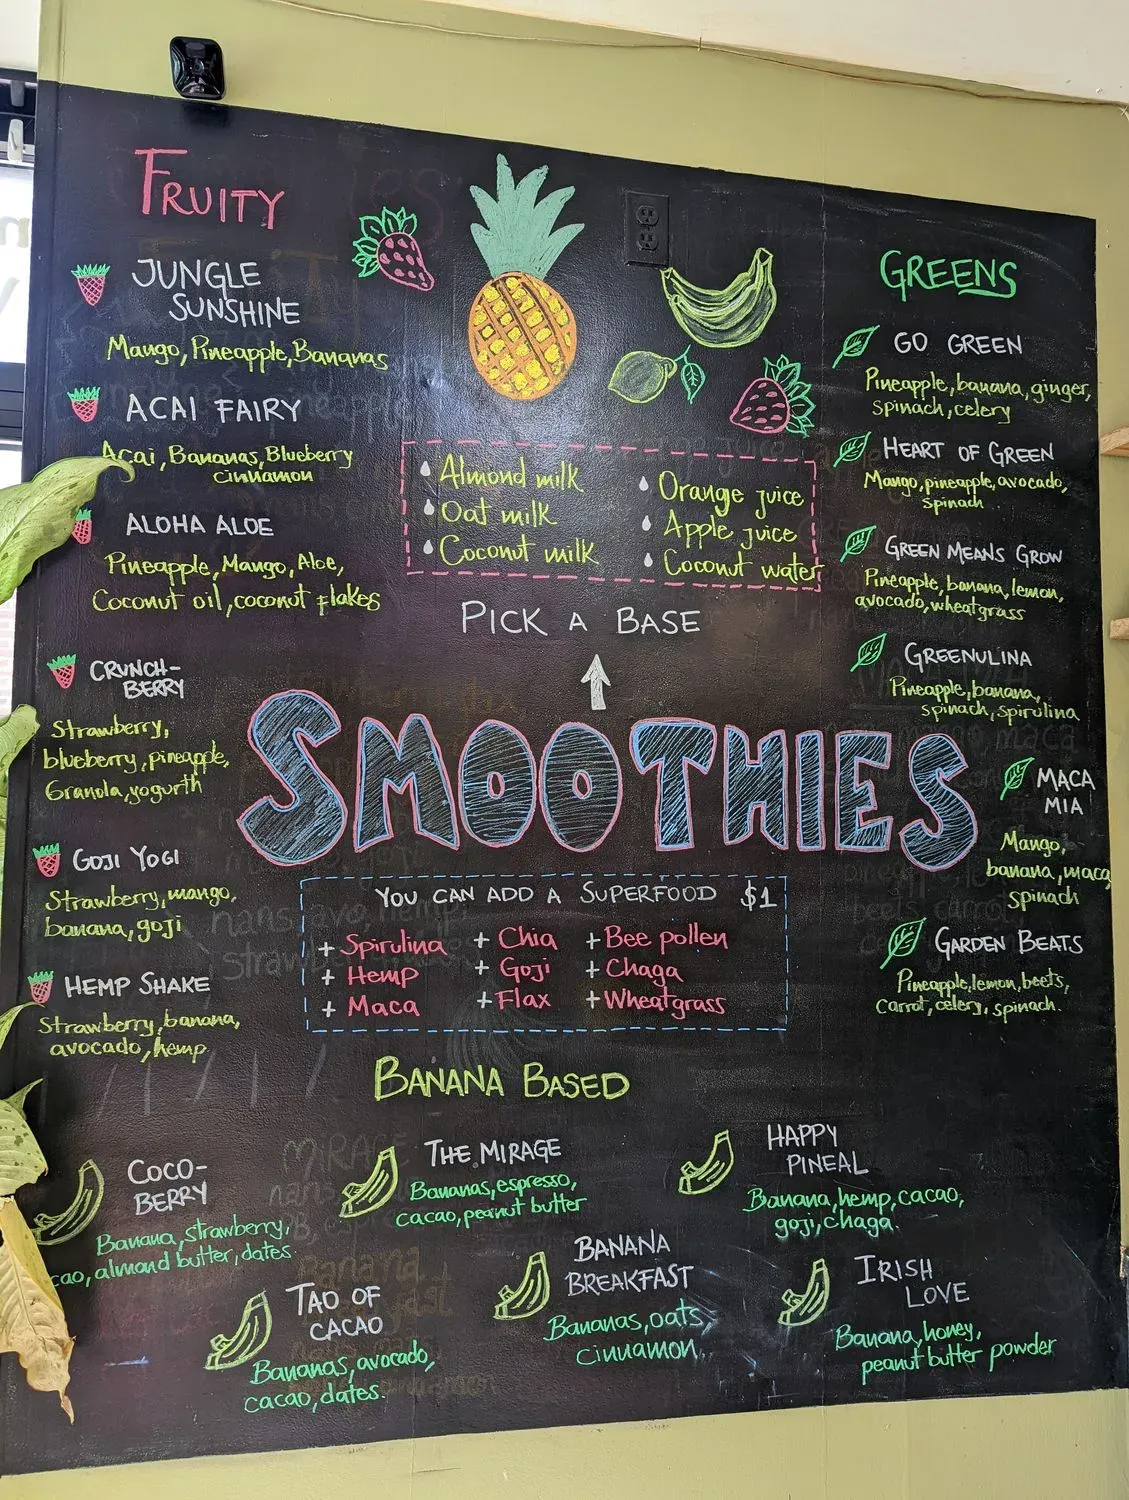 FRUITY
JUNGLE
SUNSHINE
Mango, Pineapple, Bananas
ACAI FAIRY
Acai, Bananas, Blueberry
cinnamon
ALOHA ALOE
Pineapple, Mango, Aloe,
Coconut oil, coconut flakes
CRUNCH-
BERRY
Strawberry,
blueberry, pineapple,
Granola, yogurth
GOJI YOGI
Strawberry, mango,
banana, goji
HEMP SHAKE
Strawberry, banana,
avocado, hemp
Almond milk
Oat milk
Coconut milk
Orange juice
Apple juice
Coconut water
PICK A BASE
SMOOTHIES
YOU CAN ADD A SUPERFOOD $1
+ Spirulina
+ Hemp
+ Maca
+ Chia
+ Goji
+ Flax
+ Bee pollen
+ Chaga
+ Wheatgrass
GREENS
GO GREEN
Pineapple, banana, ginger,
spinach, celery
HEART OF GREEN
Mango, pineapple, avocado,
spinach
GREEN MEANS GROW
Pineapple, banana, lemon,
avocado, wheatgrass
GREENULINA
Pineapple, banana,
spinach, spirulina
MACA
MIA
Mango,
banana, maca
spinach
GARDEN BEATS
Pineapple, lemon, beets,
Carrot, celery, spinach.
BANANA BASED
COCO-
BERRY
Banana, strawberry,
cao, almond butter, dates
THE MIRAGE
Bananas, espresso,
cacao, peanut butter
HAPPY
PINEAL
Banana, hemp, cacao,
goji, chaga.
TAO OF
CACAO
Bananas, avocado,
cacao, dates.
BANANA
BREAKFAST
Bananas, oats,
cinnamon
IRISH
LOVE
Banana, honey,
peanut butter powder